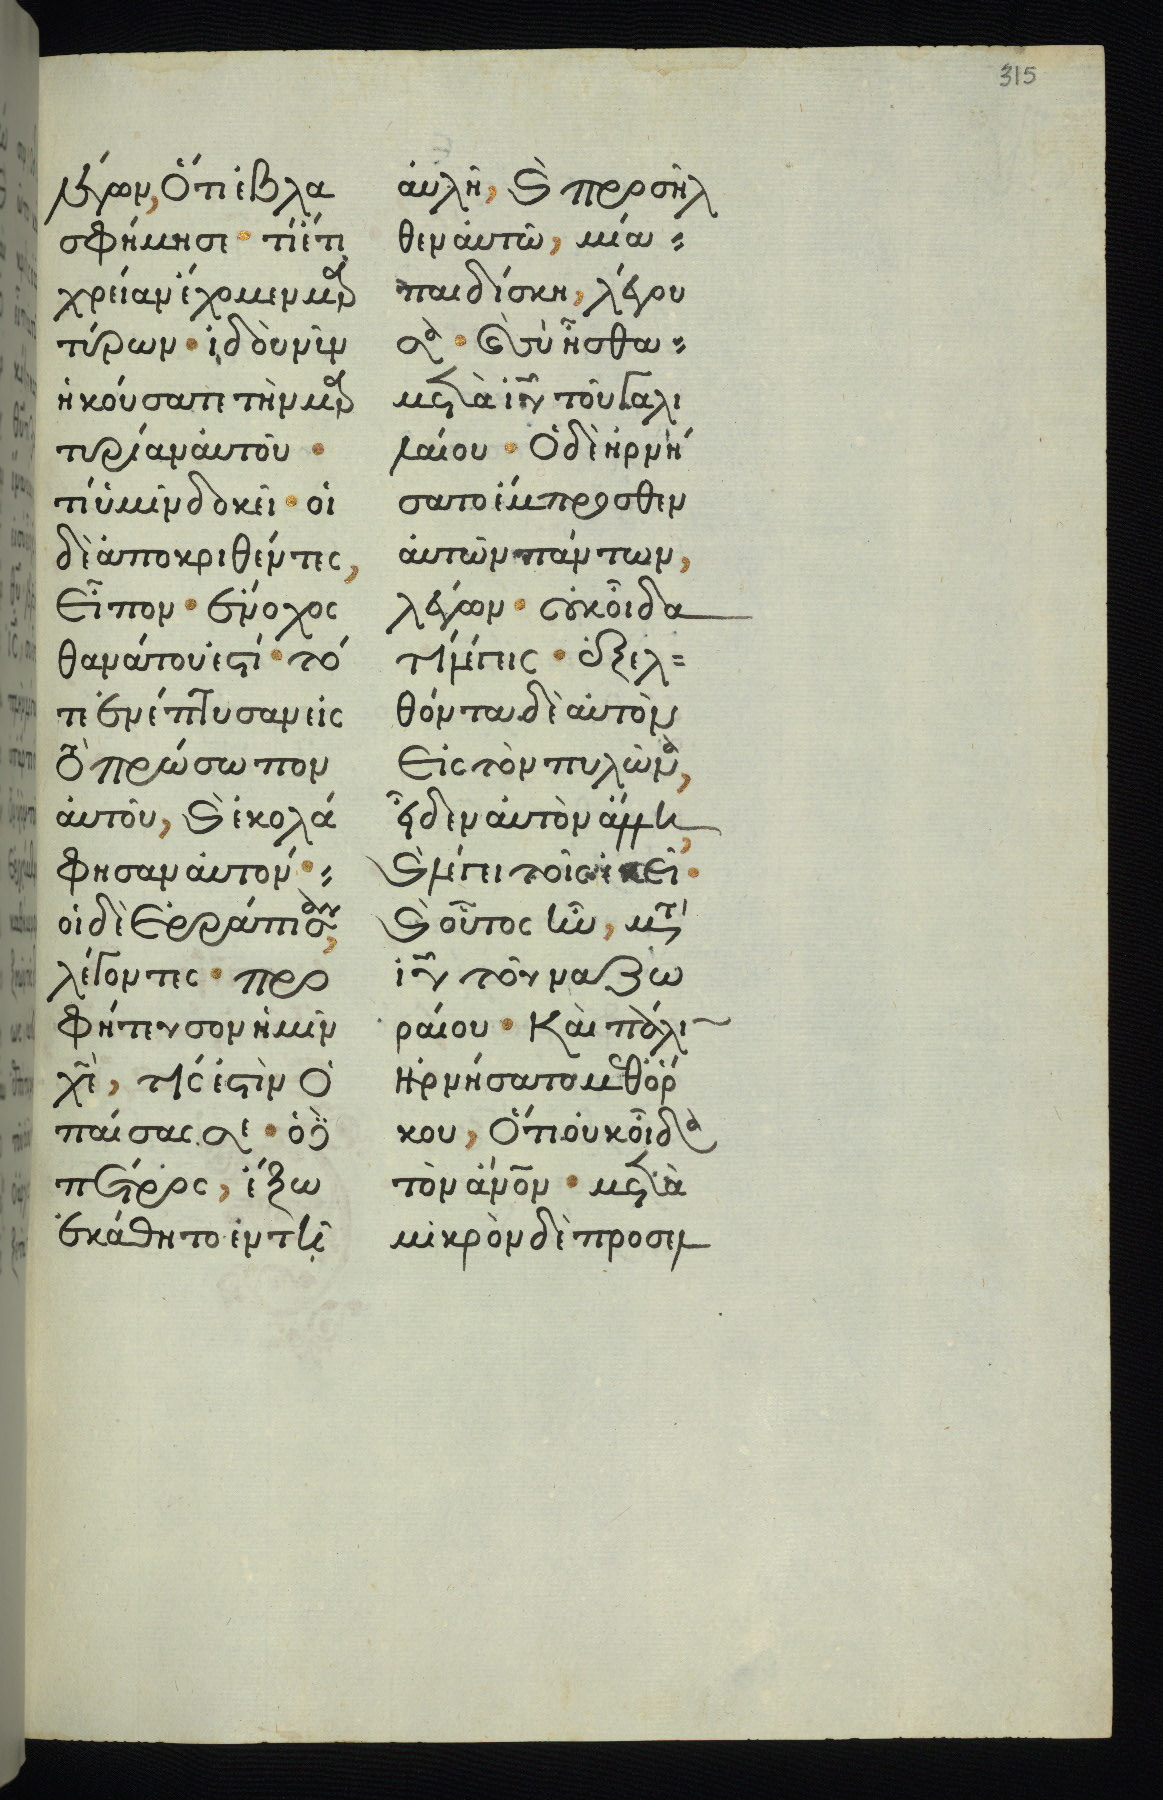 315
λέγων, Ὅτι ἐβλα
σφήμησε · τί ἔτι
χρείαν ἔχομεν μαρ
τύρων · ἰδοὺ νῦν
ἠκούσατε τὴν μαρ
τυρίαν αὐτοῦ ·
τί ὑμῖν δοκεῖ · οἱ
δὲ ἀποκριθέντες,
Εἶπον · ἔνοχος
θανάτου ἐστί · τό
τε ἐνέπτυσαν εἰς
τὸ πρόσωπον
αὐτοῦ, καὶ ἐκολά
φησαν αὐτόν ·
οἱ δὲ ἐρράπισαν,
λέγοντες · προ
φήτευσον ἡμῖν
χε̄, τίς ἐστὶν ὁ
παίσας σε · ὁ δὲ
πέτρος, ἔξω
ἐκάθητο ἐν τῆ
αὐλῆ, καὶ προσῆλ
θεν αὐτῶ, μία
παιδίσκη, λέγου
σα · καὶ σὺ ἦσθα
μετὰ ιῡ τοῦ Γαλι
λαίου · Ὁ δὲ ἠρνή
σατο ἔμπροσθεν
αὐτῶν πάντων,
λέγων · οὐκ οἶδα
τί λέγεις · ἐξελ
θόντα δὲ αὐτὸν
Εἰς τὸν πυλῶνα,
εἶδεν αὐτὸν ἄλλη,
καὶ λέγει τοῖς ἐκεῖ ·
καὶ οὗτος ἦν, μετὰ
ιῡ τοῦ ναζω
ραίου · Καὶ πάλιν
ἠρνήσατο μεθ' ὅρ
κου, Ὅτι οὐκ οἶδα
τὸν ἄνο̄ν · μετὰ
μικρὸν δὲ προσελ